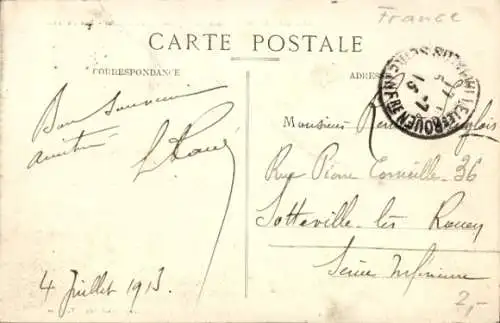 France
CARTE POSTALE
CORRESPONDANCE
ADRES
Bon Souvenir
amitié
4 Juillet 1913.
Monsieur
Rue Pierre Corneille 36
Sotteville-lès Rouen
Seine Inférieure
2,-